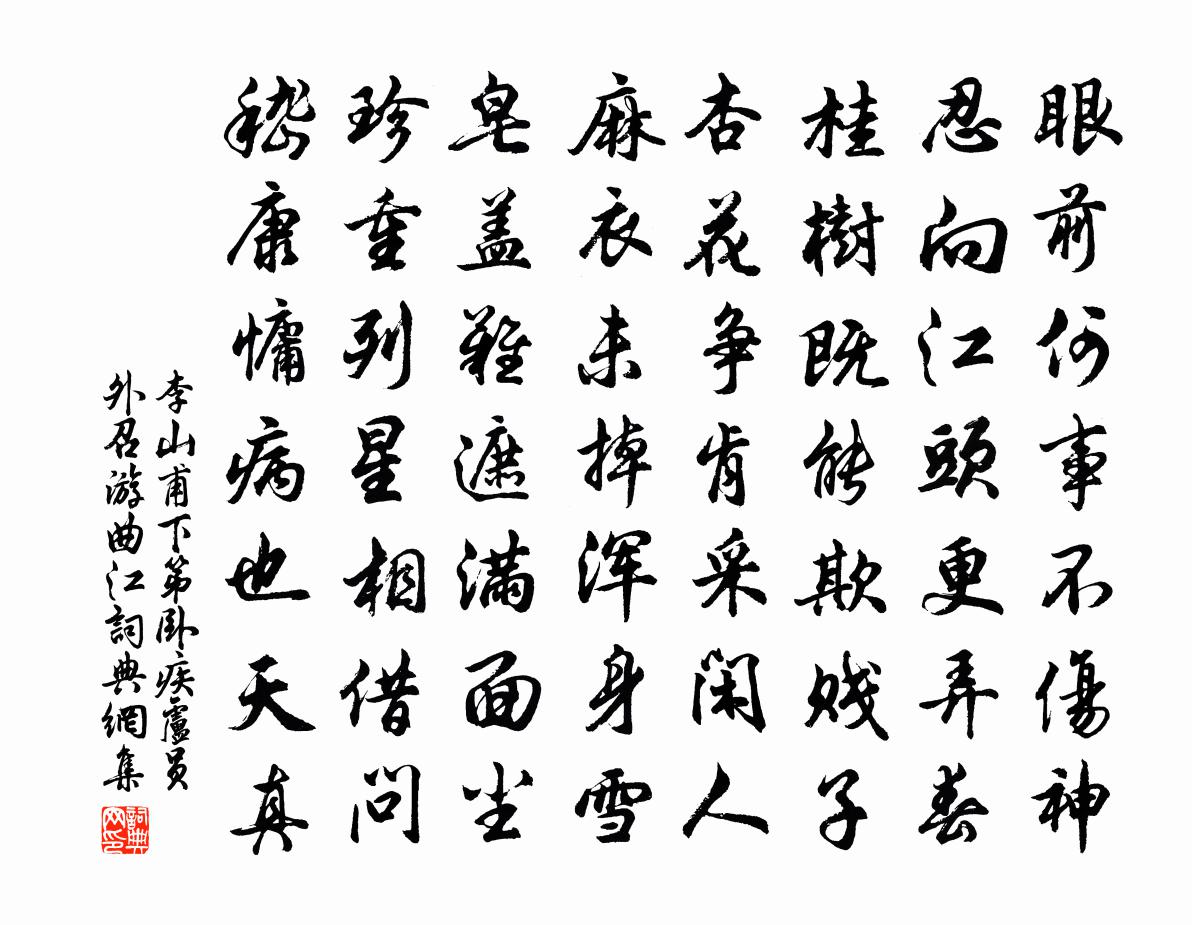 眼前何事不傷神
忍向江頭更弄春
桂樹既能欺贱子
杏花争肯采闲人
麻衣未掉浑身雪
皂盖難遮满面尘
珍重列星相借問
嵇康慵病也天真
李山甫下第卧疾盧員
外召游曲江詞典網集
詞典
网印